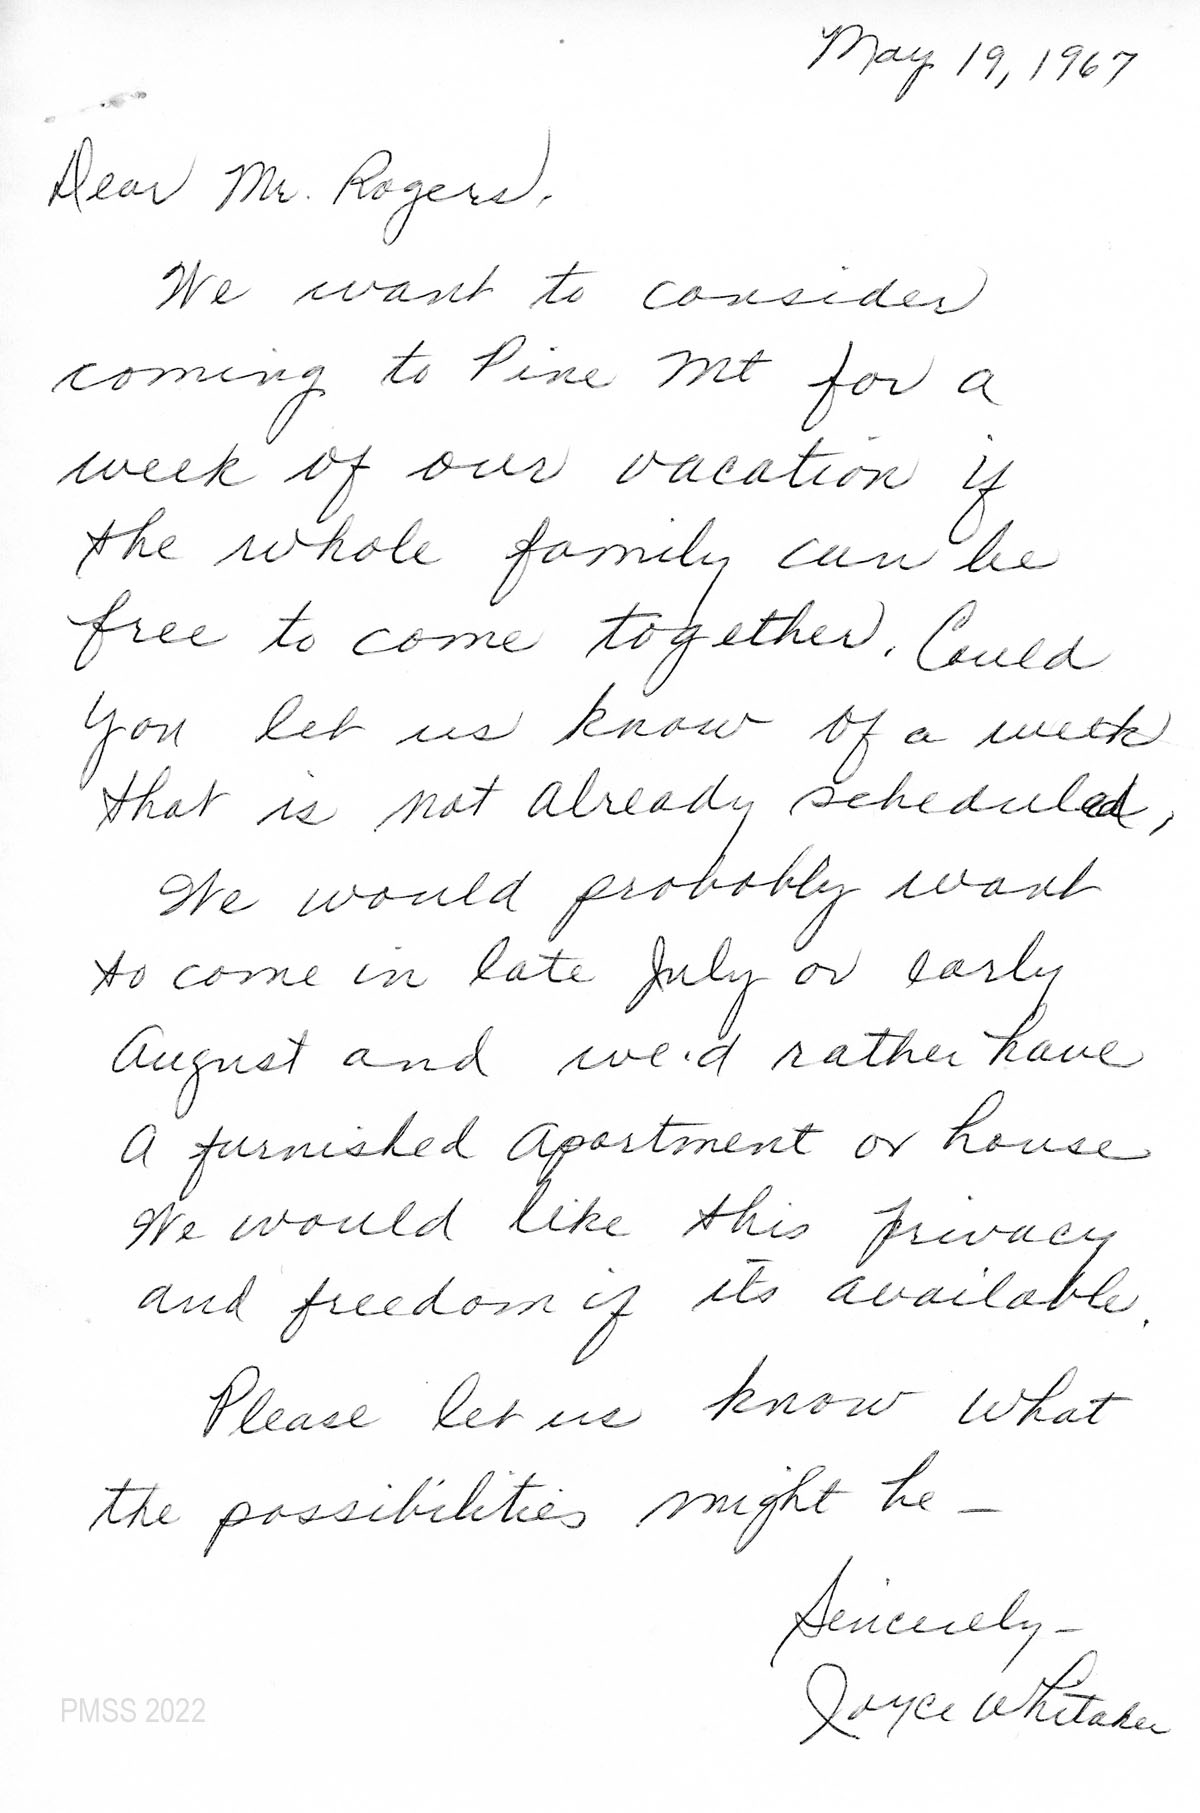 May 19, 1967
Dear Mr. Rogers,
We want to consider
coming to Pine Mt for a
week of our vacation if
the whole family can be
free to come together. Could
you let us know of a week
that is not already scheduled,
We would probably want
to come in late July or early
August and we'd rather have
a furnished apartment or house
We would like this privacy
and freedom if its available.
Please let us know what
the possibilities might be —
Sincerely —
Joyce Whitaker
PMSS 2022